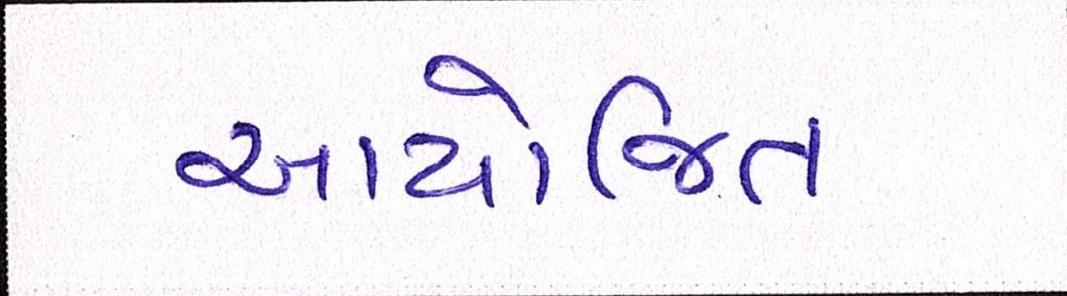 આયોજિત